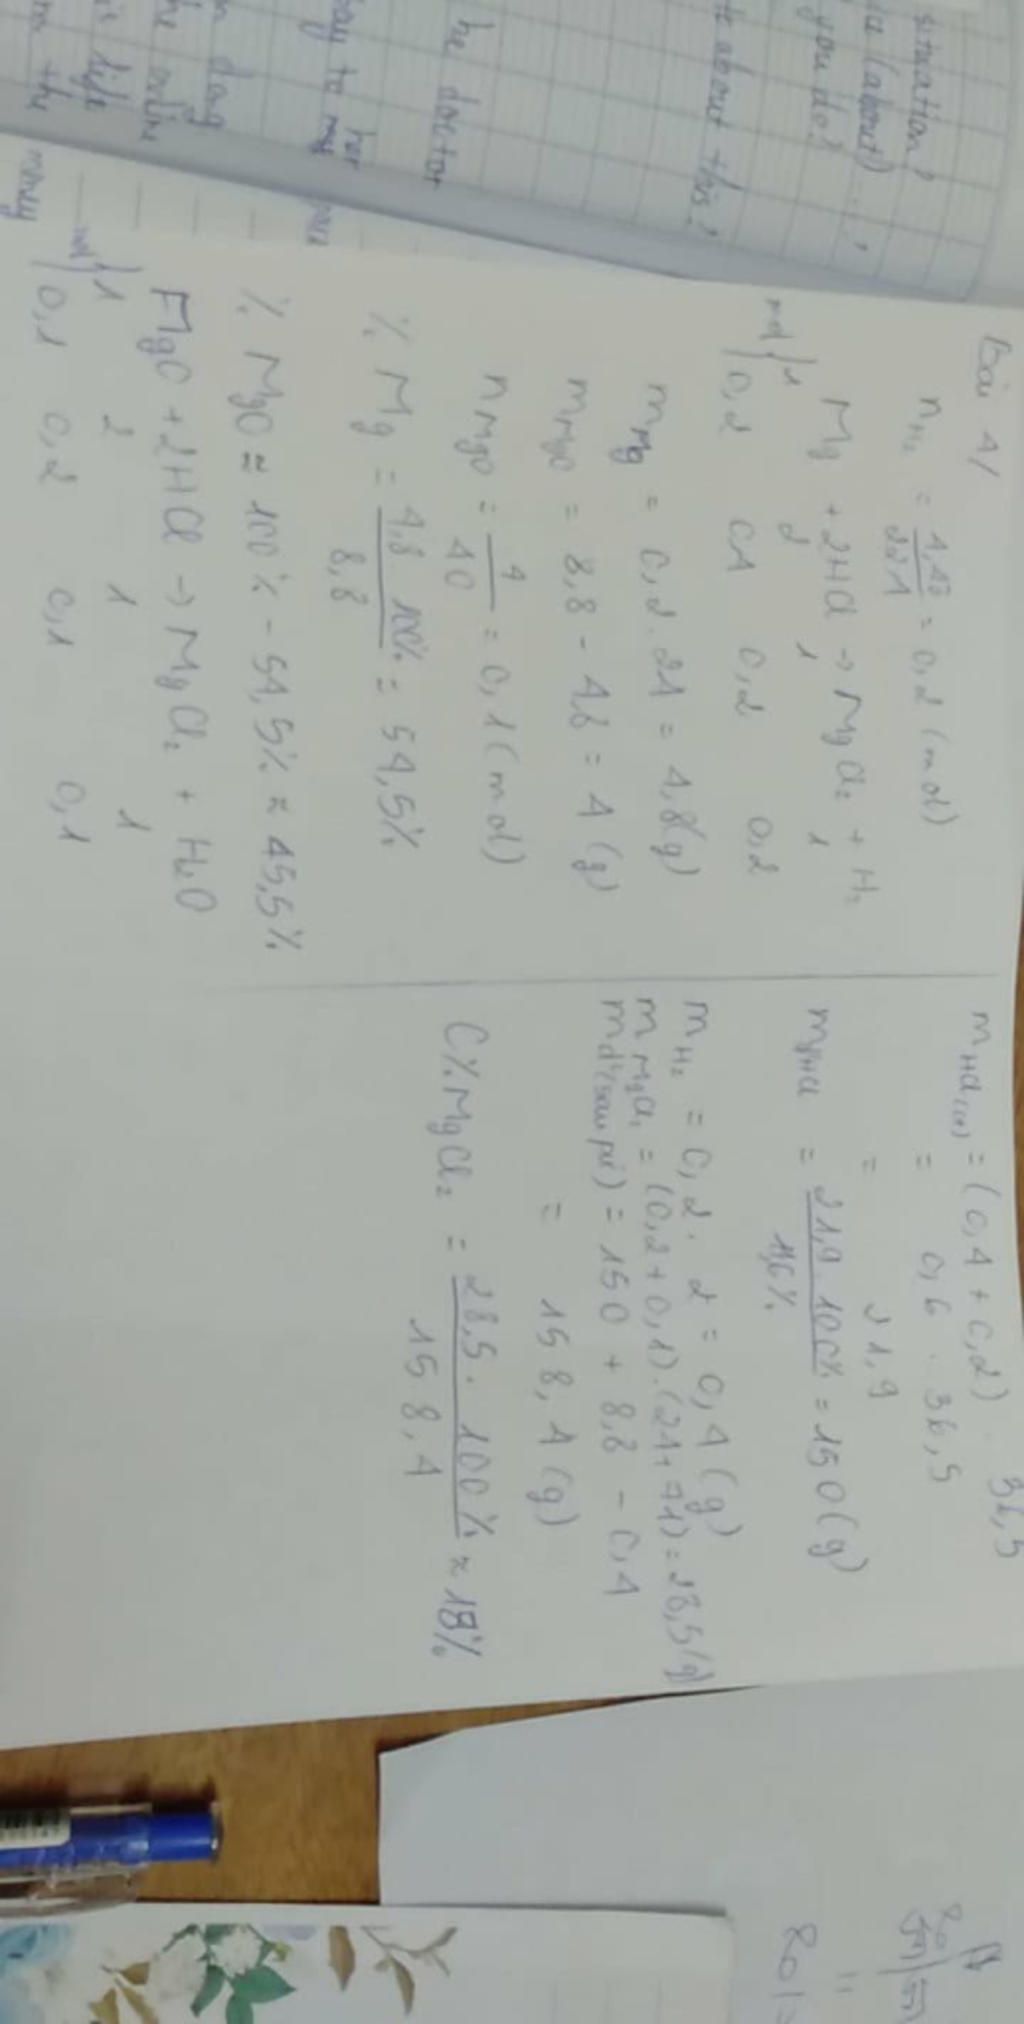 situation?
you do?
about this?
the doctor
her
say to my
day
life
the
money
Bài 4/
n H₂ = 4,48 / 22,4 = 0,2 (mol)
Mg + 2HCl → MgCl₂ + H₂
1 2 1 1
mol 0,2 0,4 0,2 0,2
m Mg = 0,2 . 24 = 4,8 (g)
m MgO = 8,8 - 4,8 = 4 (g)
n MgO = 4 / 40 = 0,1 (mol)
% Mg = 4,8 . 100% / 8,8 = 54,5%
% MgO ≈ 100% - 54,5% ≈ 45,5%
MgO + 2HCl → MgCl₂ + H₂O
1 2 1 1
mol 0,1 0,2 0,1 0,1
m HCl (ct) = (0,4 + 0,2) . 36,5
= 0,6 . 36,5
= 21,9
m HCl = 21,9 . 100% / 14,6% = 150 (g)
m H₂ = 0,2 . 2 = 0,4 (g)
m MgCl₂ = (0,2 + 0,1) . (24 + 71) = 28,5 (g)
m d² (sau pứ) = 150 + 8,8 - 0,4
= 158,4 (g)
C% MgCl₂ = 28,5 . 100% / 158,4 ≈ 18%